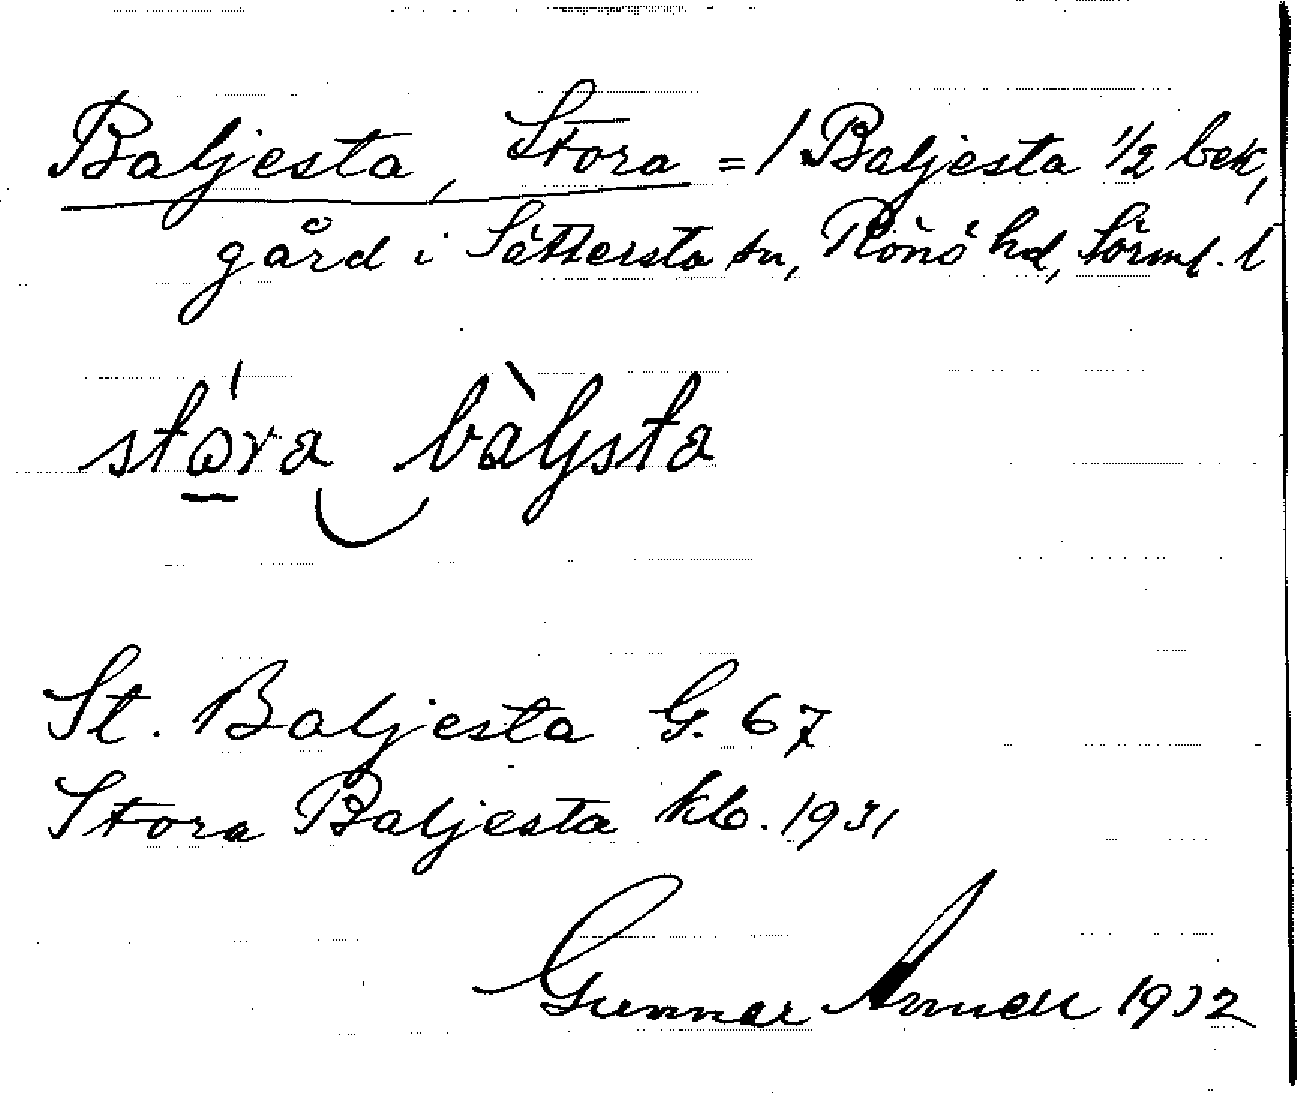 Baljesta, Stora = 1 Baljesta 1/2 bek,
gård i Sättersta sn, Rönö hd, Sörml. l
stora baljsta
St. Baljesta G. 67
Stora Baljesta kb. 1931
Gunnar 1932